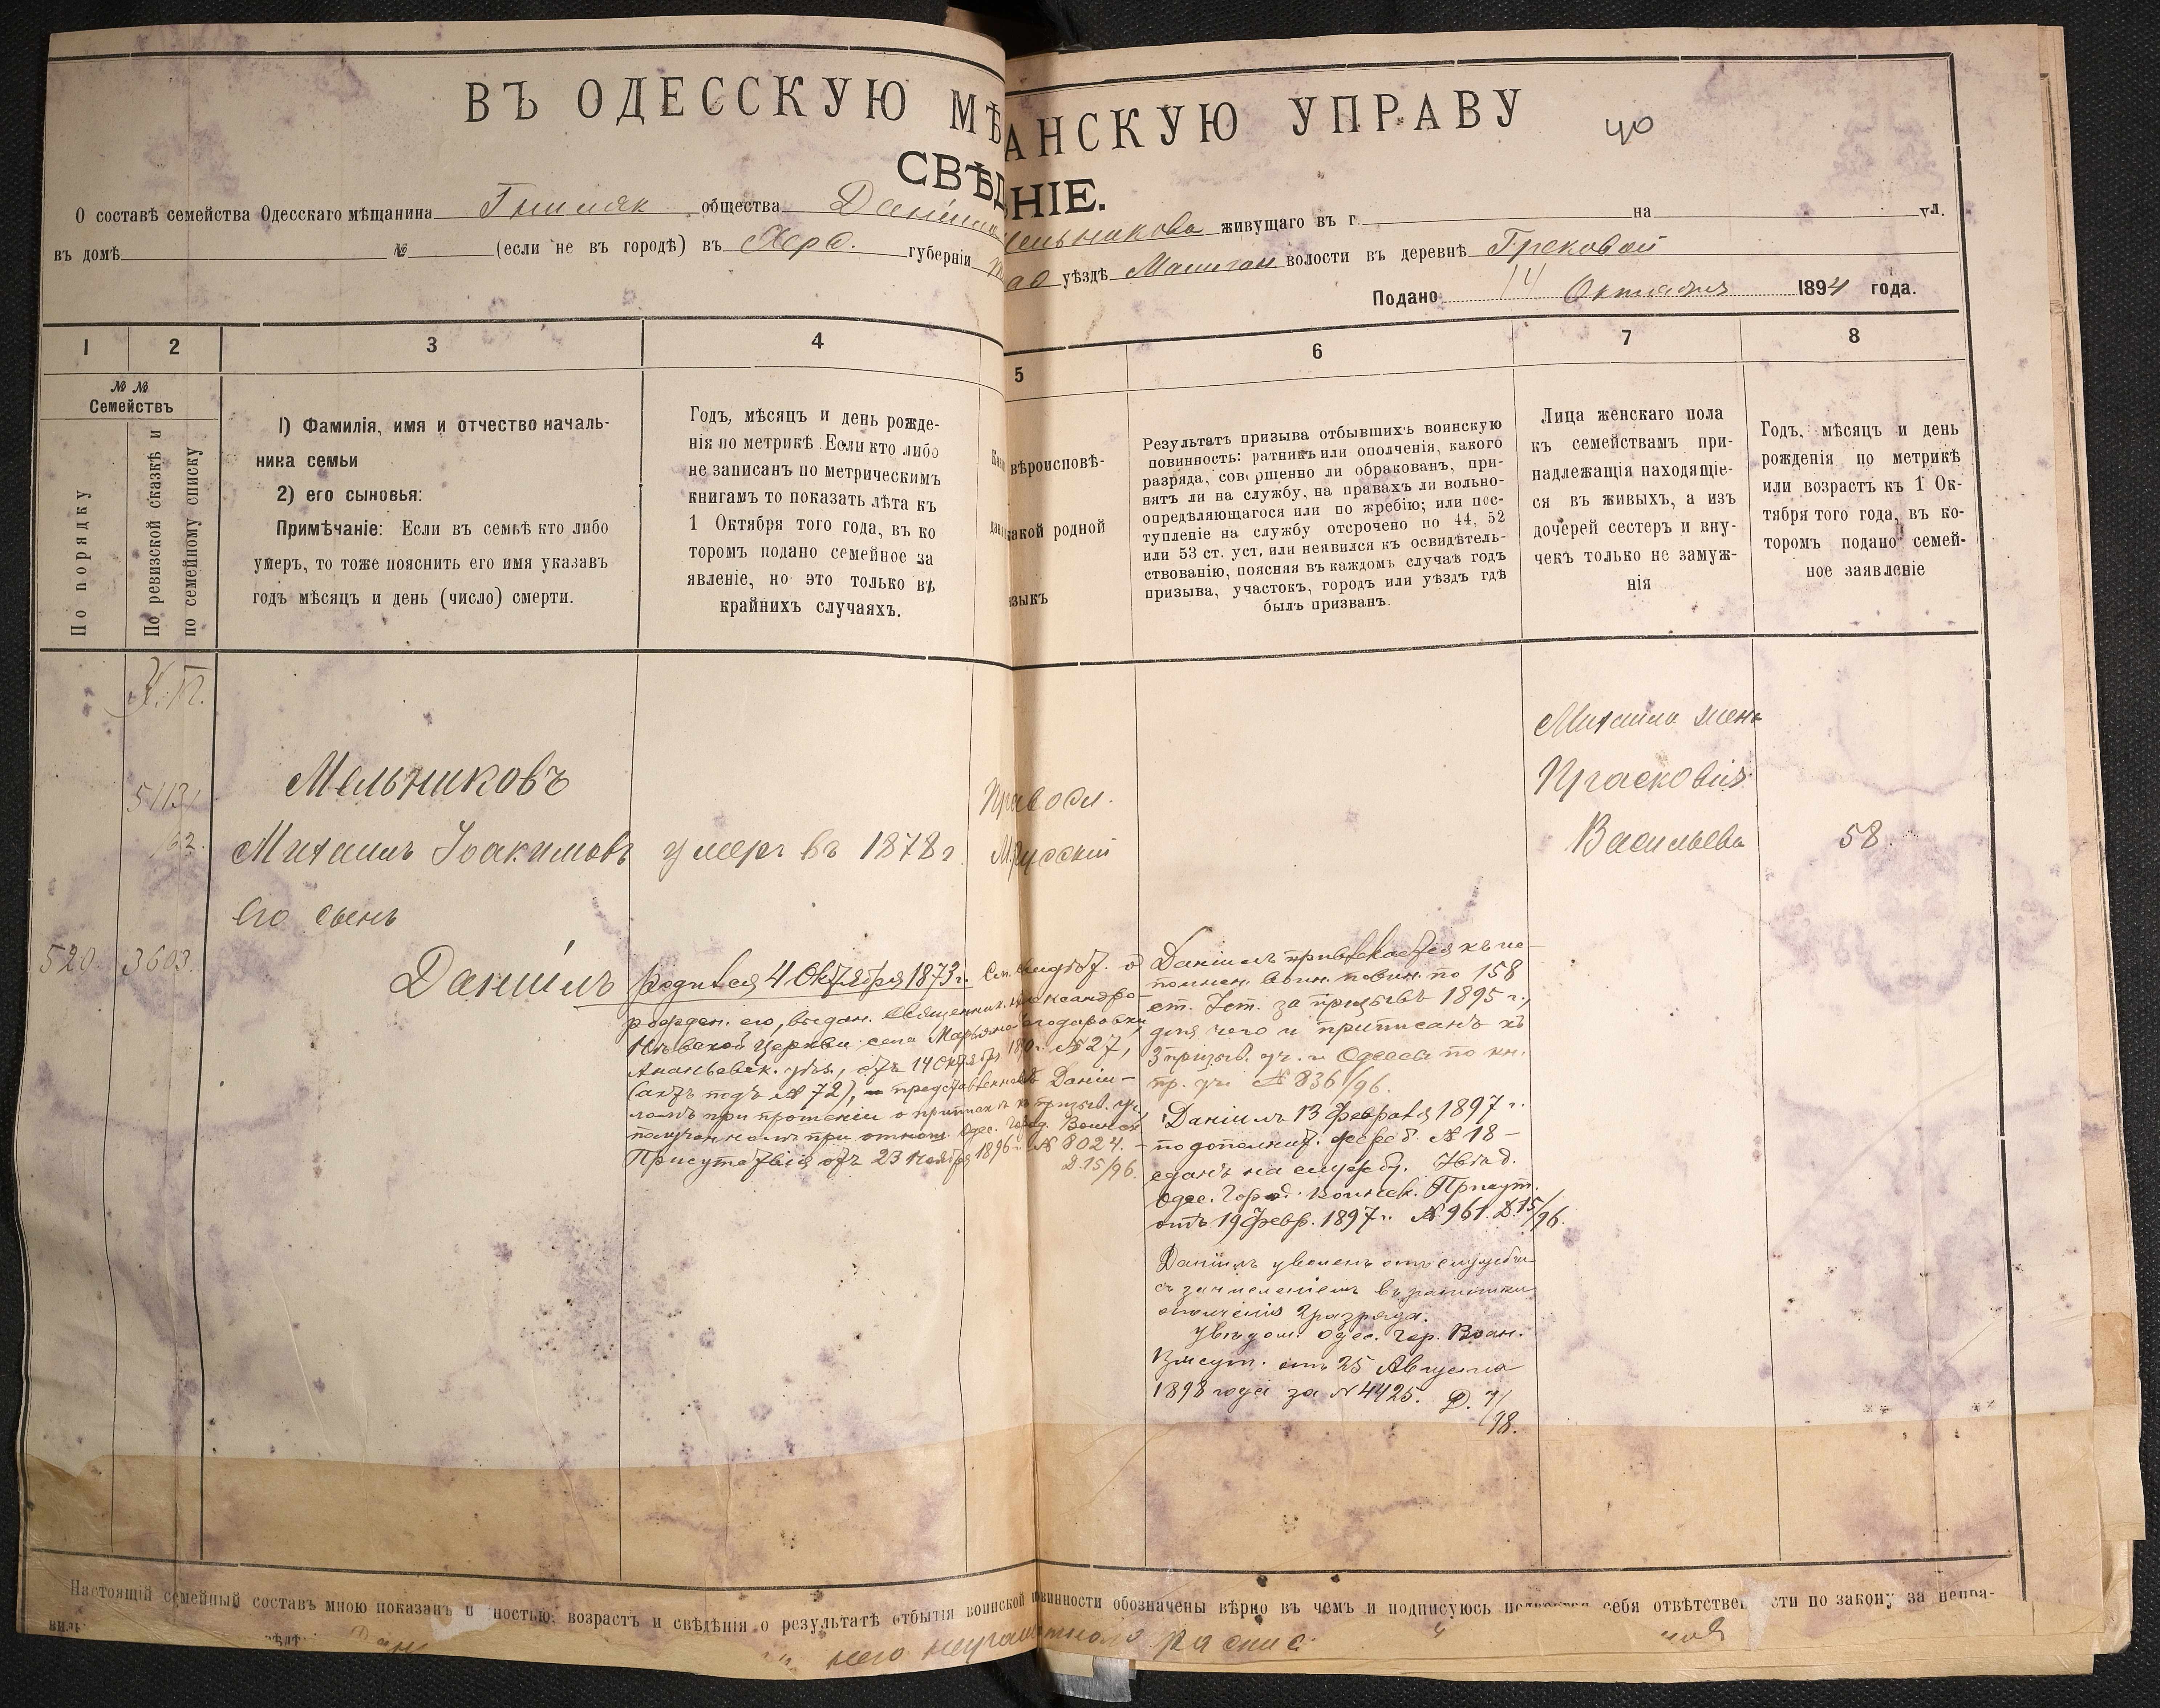 ВЪ ОДЕССКУЮ МѢ АНСКУЮ УПРАВУ
40
СВѢД НІЕ.
О составѣ семейства Одесскаго мѣщанина общества Даніила Мельникова живущаго въ г. на ул.
въ домѣ № (если не въ городѣ) въ Херс. губерніи уѣздѣ волости въ деревнѣ Грековой
Подано 14 Октября 1894 года.
1 2 3 4 5 6 7 8
№ №
Семействъ
По порядку
По ревизской сказкѣ и
по семейному списку
1) Фамилія, имя и отчество началь-
ника семьи
2) его сыновья:
Примѣчаніе: Если въ семьѣ кто либо
умеръ, то тоже пояснить его имя указавъ
годъ мѣсяцъ и день (число) смерти.
Годъ, мѣсяцъ и день рожде-
нія по метрикѣ Если кто либо
не записанъ по метрическимъ
книгамъ то показать лѣта къ
1 Октября того года, въ ко
торомъ подано семейное за
явленіе, но это только въ
крайнихъ случаяхъ.
вѣроисповѣ-
какой родной
языкъ
Результатъ призыва отбывшихъ воинскую
повинность: ратникъ или ополченія, какого
разряда, совершенно ли обракованъ, при-
нятъ ли на службу, на правахъ ли вольно-
опредѣляющагося или по жребію; или пос-
тупленіе на службу отсрочено по 44, 52
или 53 ст. уст. или неявился къ освидѣтель-
ствованію, поясняя въ каждомъ случаѣ годъ
призыва, участокъ, городъ или уѣздъ гдѣ
былъ призванъ.
Лица женскаго пола
къ семействамъ при-
надлежащія находящіе-
ся въ живыхъ, а изъ
дочерей сестеръ и вну-
чекъ только не замуж-
нія
Годъ, мѣсяцъ и день
рожденія по метрикѣ
или возрастъ къ 1 Ок-
тября того года, въ ко-
торомъ подано семей-
ное заявленіе
5113
162.
Мельниковъ
Михаилъ Іоакимовъ
умеръ въ 1878 г.
Правосл.
Русскій
Михаила жена
Прасковія
Васильева
58
его сынъ
520 3603.
Даніилъ
родился 4 Октября 1873 г. См. свидѣт. о
рожден. его, выдан. Священник. Александро-
Невской Церкви села Марьяно
Ананьевск. уѣз., отъ 14 Октября № 27,
(актъ подъ № 72), представленное Даніи-
ломъ при прошеніи о припискѣ къ призыв. уч.,
полученномъ при отнош. Одес. Город. Воинск.
Присутствія отъ 23 Ноября 1896 г. № 8024. —
Д. 15/96.
Даніилъ привлекается къ ис-
полнен. воин. повин. по 158
ст. Уст. за призывъ 1895 г.,
для чего и приписанъ къ
3 призыв. уч. г. Одессы по кн.
пр. уч. № 836/96.
Даніилъ 13 Февраля 1897 г.
по дополнит. жереб. № 18 —
сданъ на службу. Увѣд.
Одес. Город. Воинск. Присут.
отъ 19 Февр. 1897 г. № 961. Д. 15/96.
Даніилъ уволенъ отъ службы
съ зачисленіемъ въ ратники
ополченія 2 разряда.
Увѣдом. Одес. Гор. Воин.
Присут. отъ 25 Августа
1898 года за № 4425. Д. 7/
98.
Настоящій семейный составъ мною показанъ п ностью, возрастъ и свѣдѣнія о результатѣ отбытія воинской повинности обозначены вѣрно въ чемъ и подписуюсь себя отвѣтстве сти по закону за непра-
него неграмотнаго распис